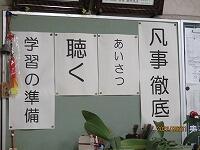 凡事徹底
あいさつ
聴く
学習の準備